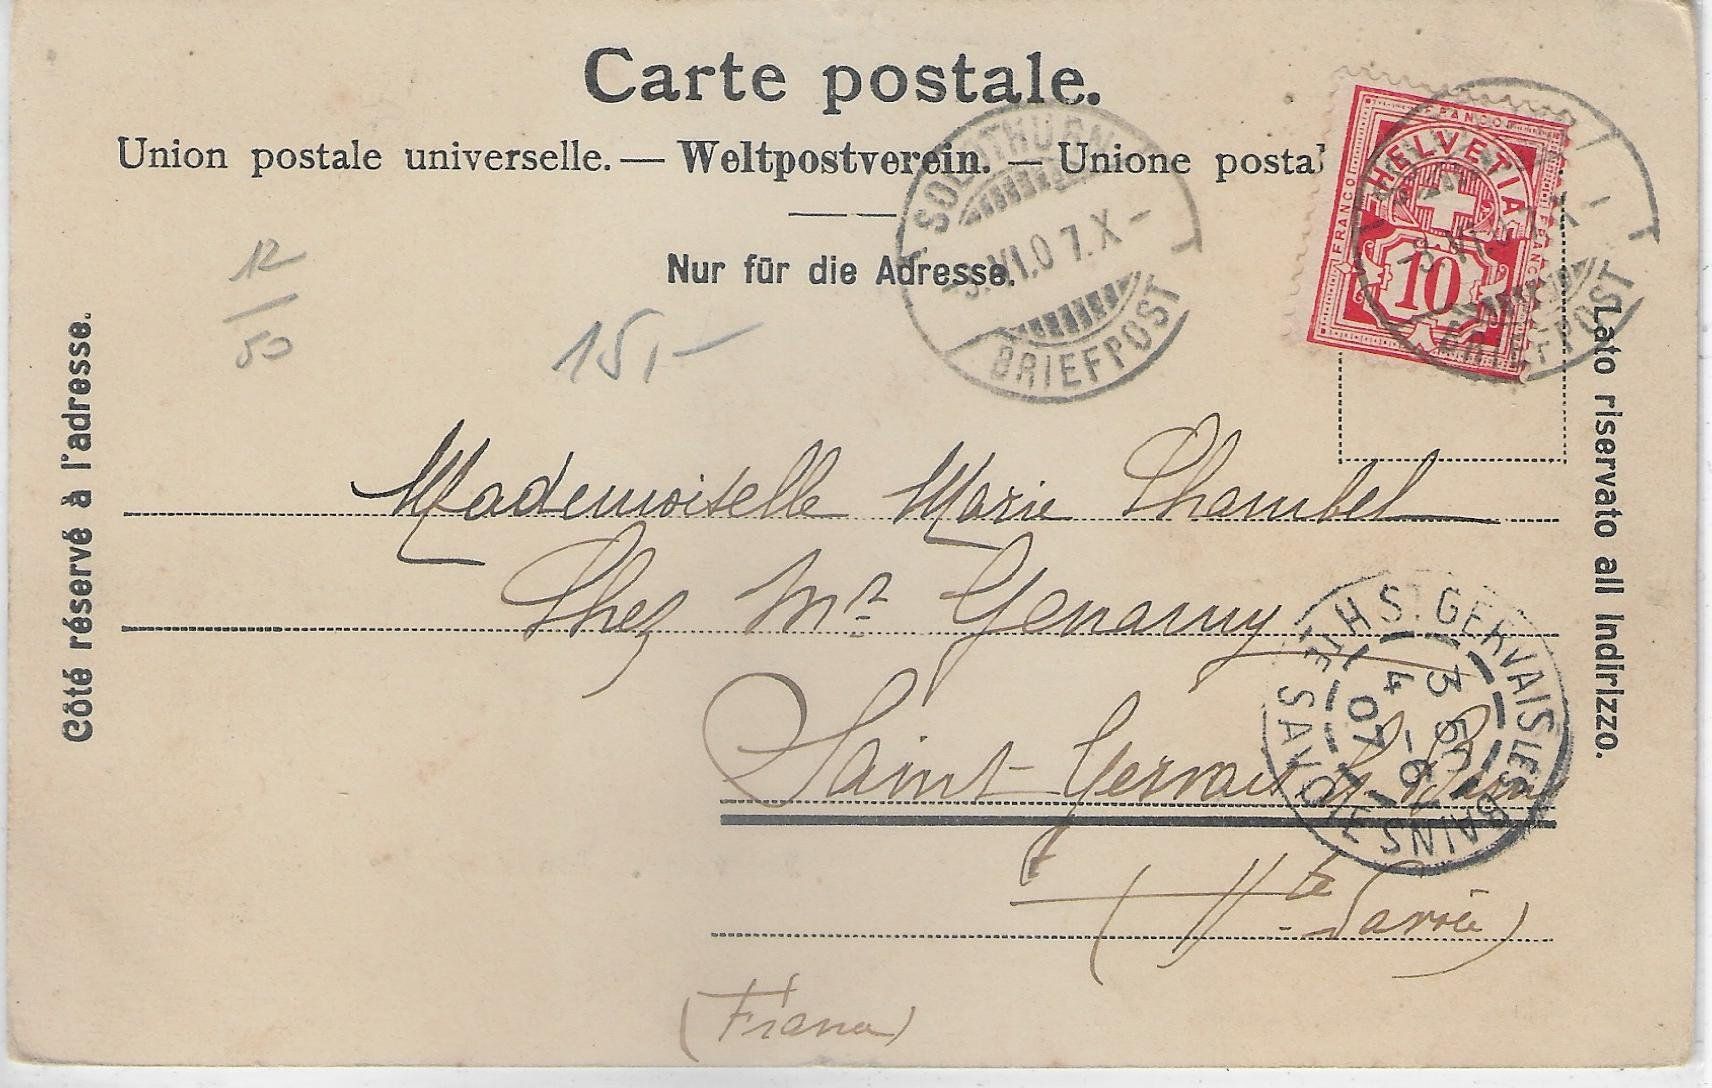 Carte postale.
Union postale universelle. — Weltpostverein. — Unione postal
Nur für die Adresse.
Côté réservé à l'adresse.
Lato riservato all Indirizzo.
12
50
15,-
SOLOTHURN
-3.VI.07.X-
BRIEFPOST
FRANCO
HELVETIA
FRANCO
FRANCO
10
-3.VI.07.X-
BRIEFPOST
Mademoiselle Marie Chambel
Chez Mr
Saint-Gervais les Bains
(Hte Savoie)
(France)
ST GERVAIS LES BAINS
HTE SAVOIE
3 50
4 -6
07